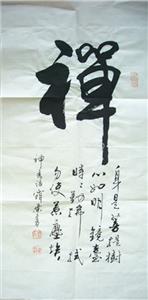 禪
身是菩提樹
心如明鏡臺
時々勤拂拭
勿使惹塵埃